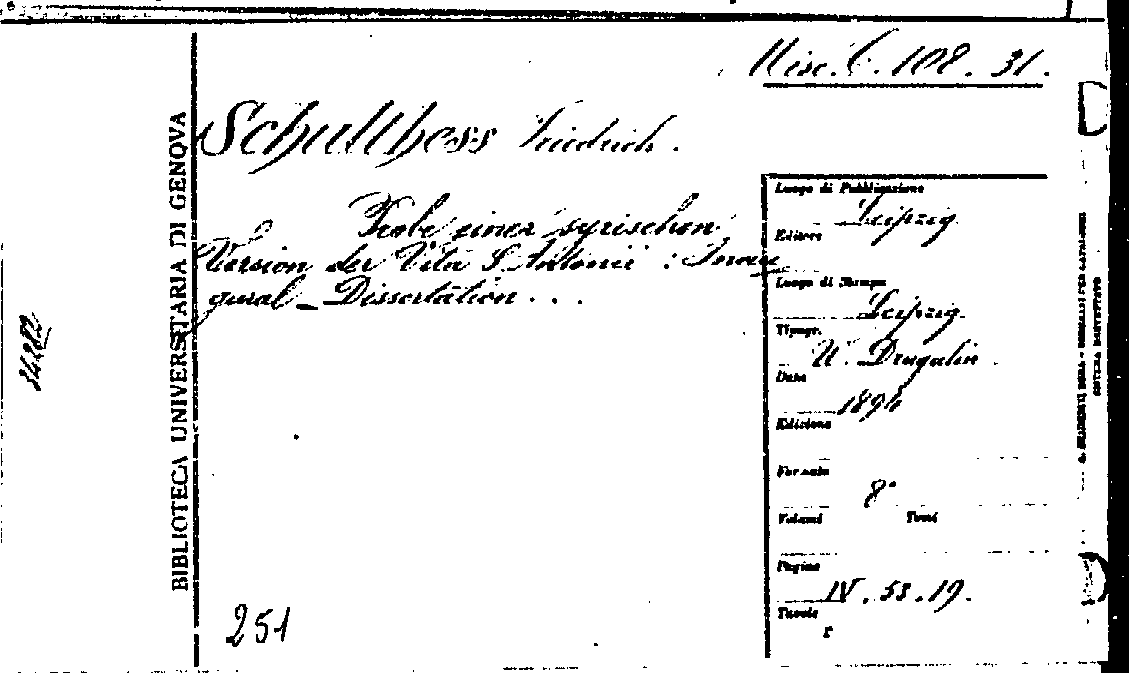 Misc. C. 108. 31.
Schulthess Friedrich.
Probe einer syrischen
Version der Vita S. Antonii : Inau
gural - Dissertation . . .
BIBLIOTECA UNIVERSITARIA DI GENOVA
251
Luogo di Pubblicazione
Leipzig
Editore
Luogo di Stampa
Leipzig
Tipogr.
W. Drugulin
Data
1894
Edizione
Formato
8°
Volumi Tomi
Pagine
IV. 53. 19.
Tavole